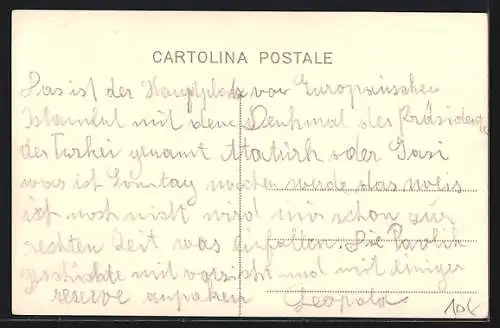 CARTOLINA POSTALE
Das ist der Hauptplatz von Europäischen
Istambul mit dem Denkmal des Präsident
der Türkei genannt Atatürk oder Gasi
was ist Sonntag machen werde das weis
ich noch nicht wird mir schon zur
rechten Zeit was einfallen. Die
geschichte mit vorsicht und mit einiger
reserve anpaken Leopold
10€